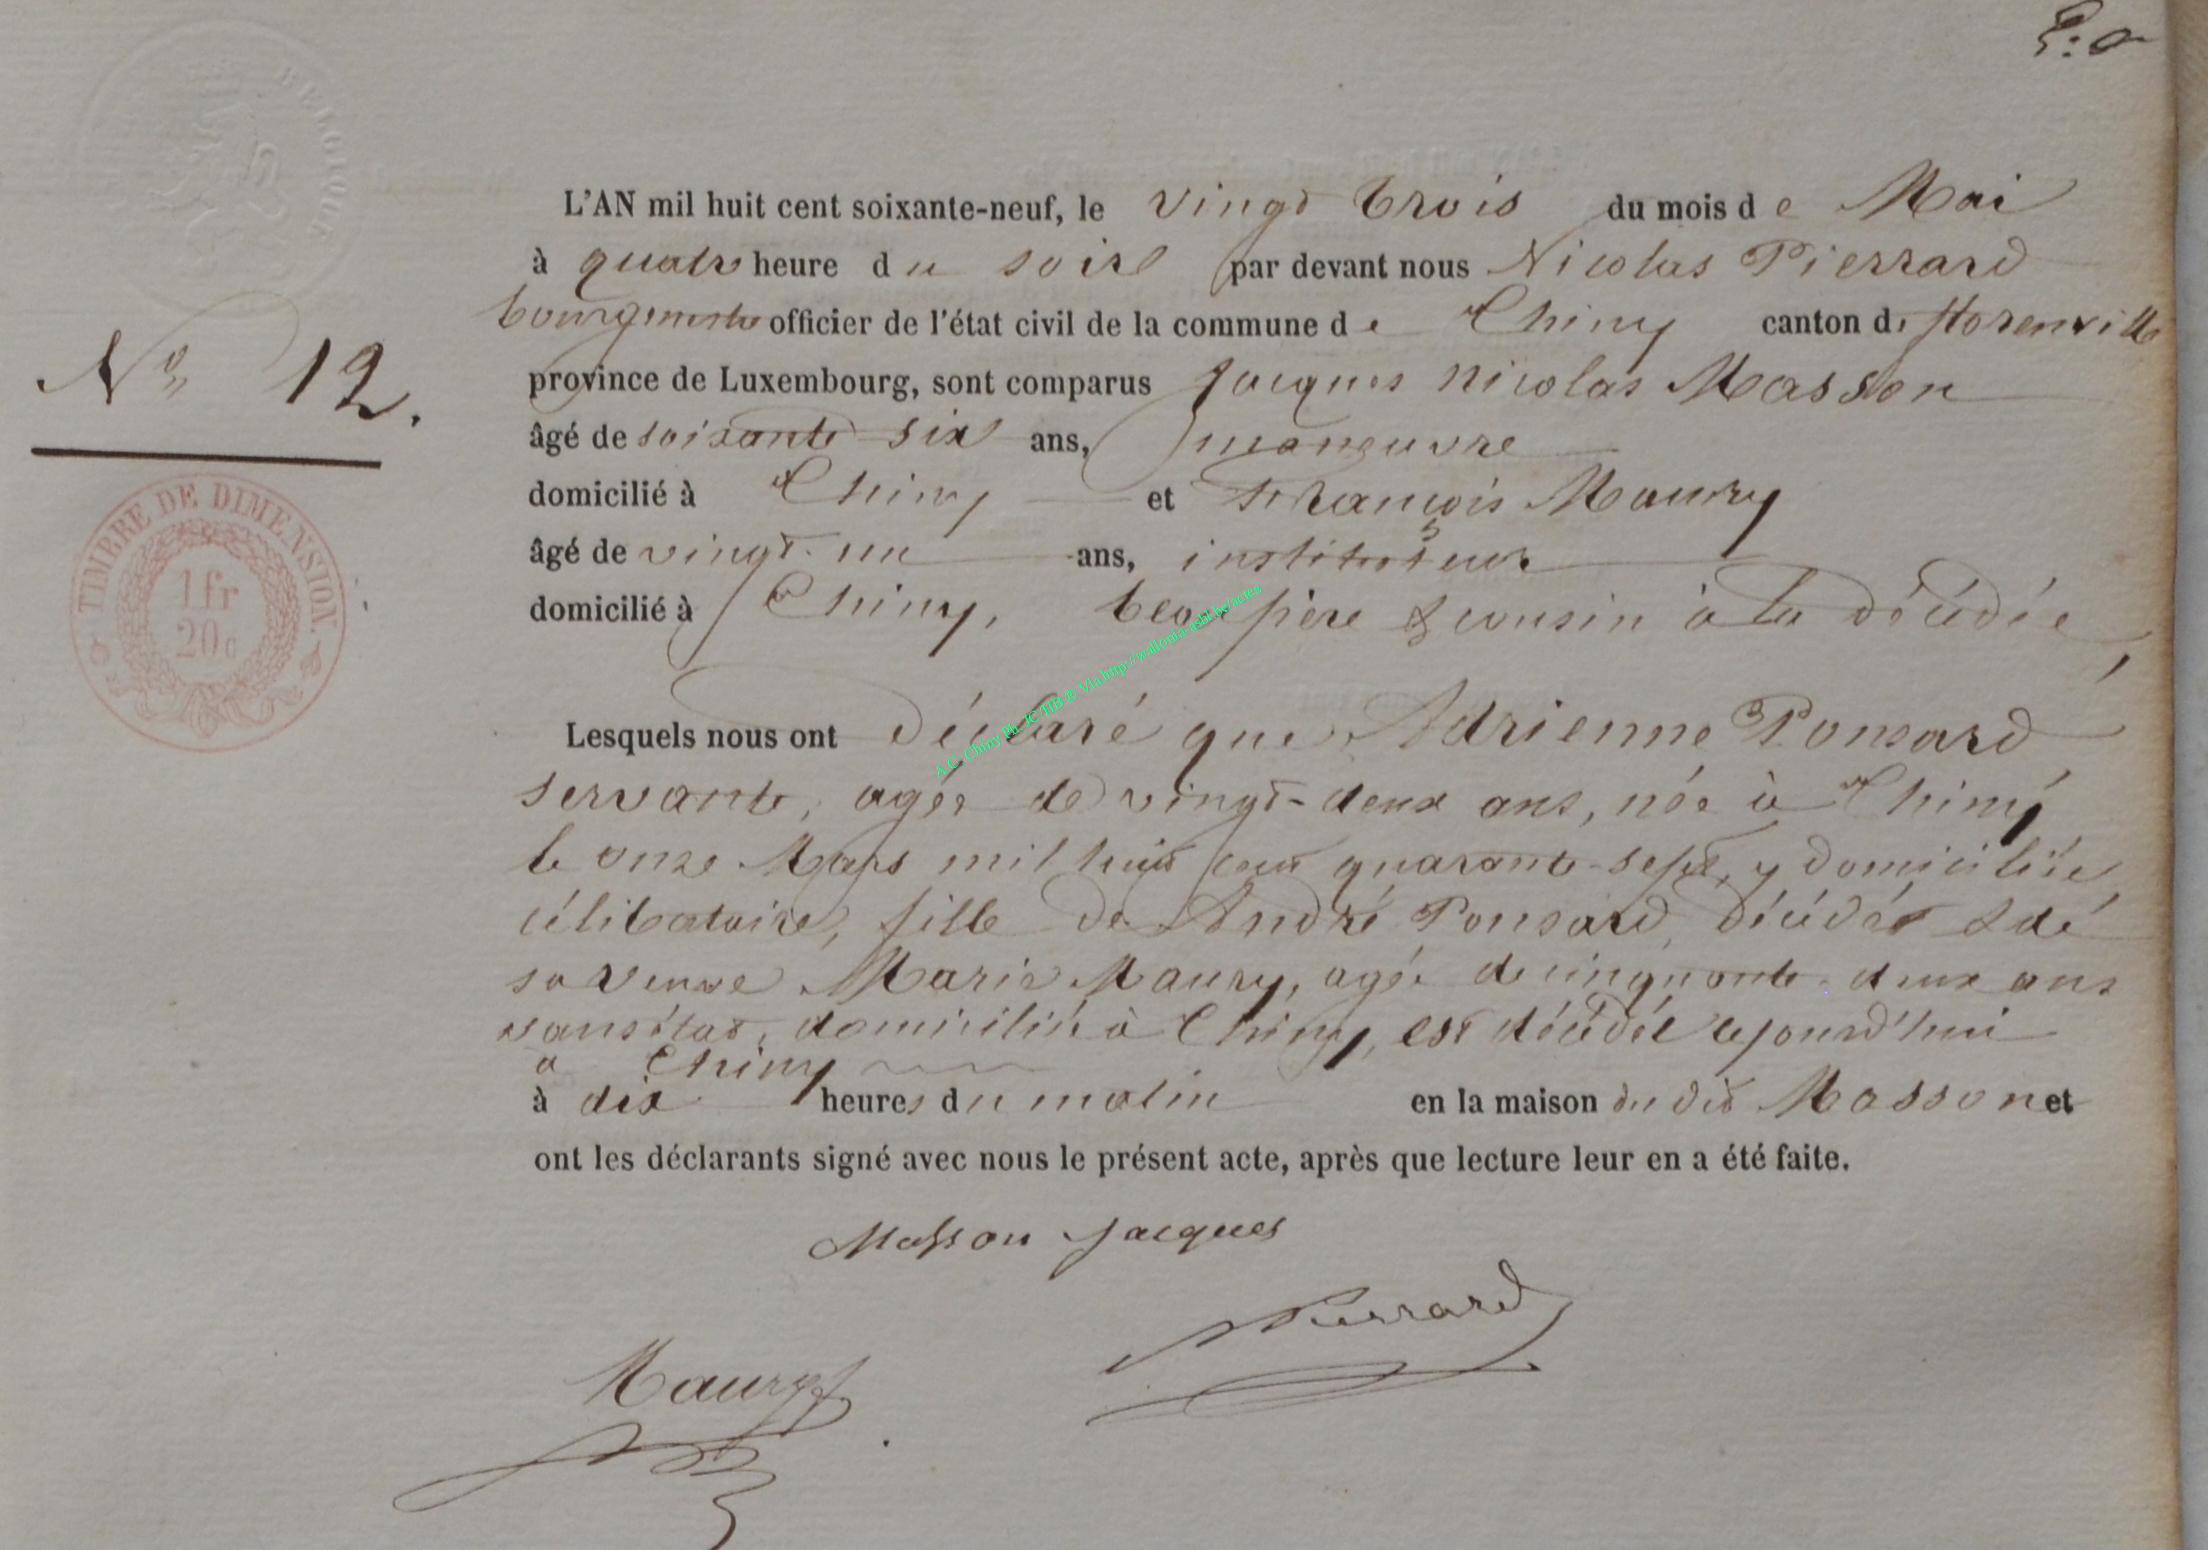 BELGIQUE
L'AN mil huit cent soixante-neuf, le vingt trois du mois de Mai
à quatre heure du soir par devant nous Nicolas Pierrard
bourgmestre officier de l'état civil de la commune de Chiny canton de florenville
N° 12.
province de Luxembourg, sont comparus Jacques Nicolas Masson
âgé de soixante six ans, manœuvre
domicilié à Chiny et François Maury
âgé de vingt-un ans, instituteur
domicilié à Chiny, beau père & cousin à la décédée,
TIMBRE DE DIMENSION.
1 fr
20 c
A.C. Chiny Ph. JC THB @ Via http://wallonia-asbl.be/actes
Lesquels nous ont déclaré que Adrienne Ponsard
servante, agée de vingt-deux ans, née à Chiny
le onze Mars mil huit cent quarante-sept, y domiciliée,
célibataire, fille de André Ponsard, décédé & de
sa veuve Marie Maury, agée de cinquante-deux ans
sans état, domiciliée à Chiny, est décédée cejourd'hui
à Chiny
à dix heures du matin en la maison du dit Masson et
ont les déclarants signé avec nous le présent acte, après que lecture leur en a été faite.
Masson Jacques
N Pierrard
Maury f